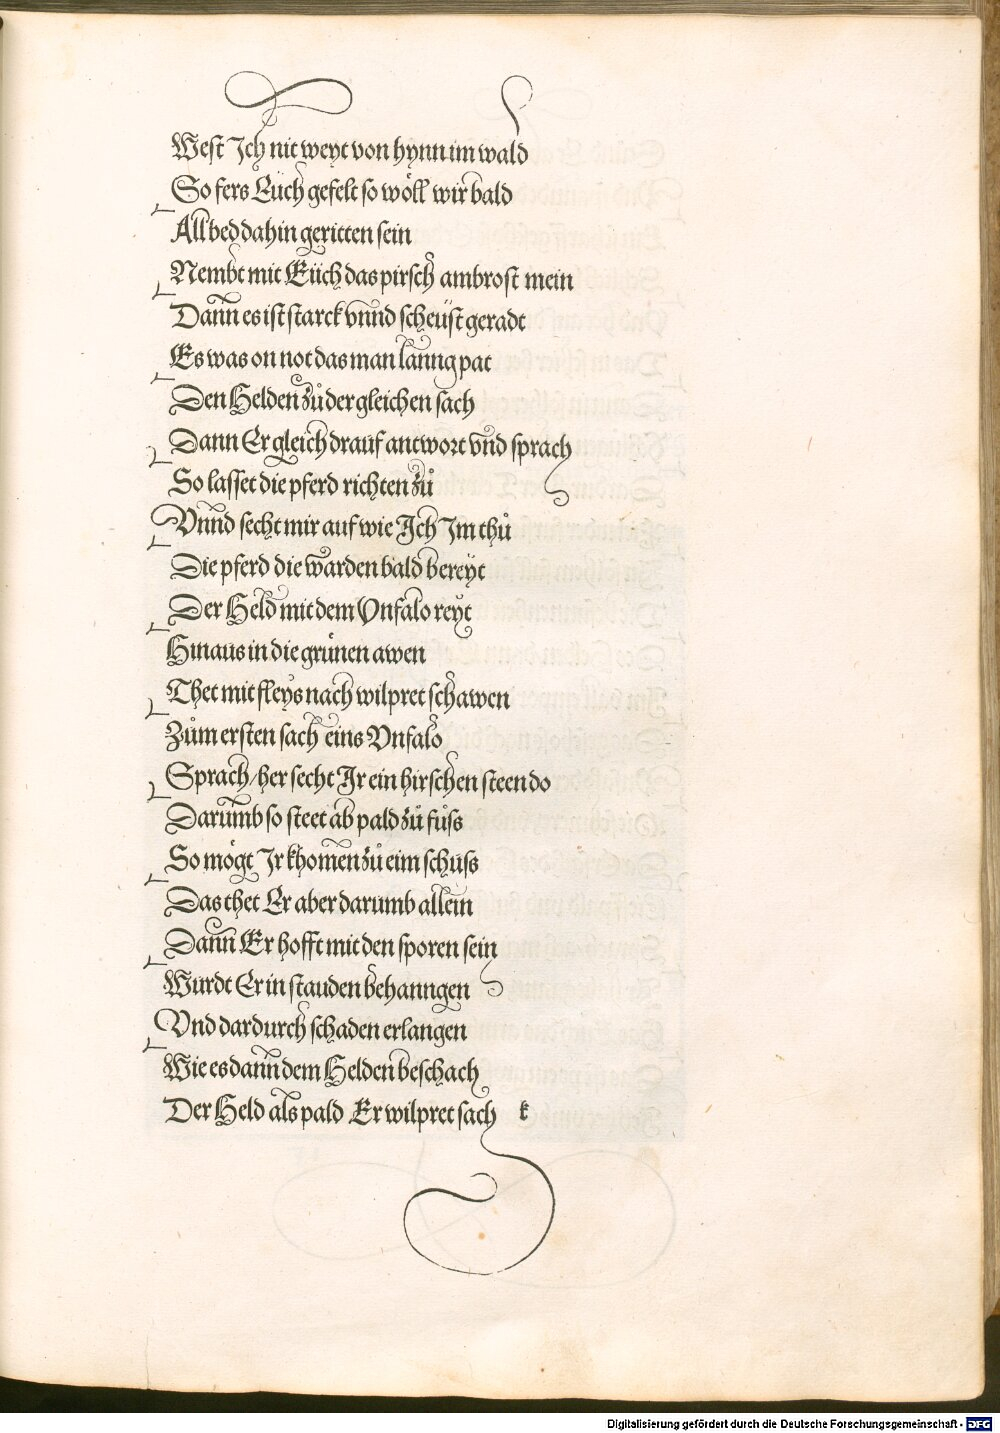 West Jch nit weyt von hynn im wald
So fers Euch gefelt so wöll wir bald
All bed dahin geritten sein
Nembt mit Eüch das pirsch ambrost mein
Dann es ist starck vnnd scheüst geradt
Es was on not das man lanng pat
Den Helden zů der gleichen sach
Dann Er gleich drauf antwort vnd sprach
So lasset die pferd richten zů
Vnnd secht mir auf wie Jch Jm thů
Die pferd die warden bald bereyt
Der Held mit dem Vnfalo reyt
Hinaus in die grünen awen
Thet mit fleys nach wilpret schawen
Zům ersten sach eins Vnfalo
Sprach / her secht Jr ein hirschen steen do
Darumb so steet ab pald zů fůss
So mögt Jr khomen zů eim schuss
Das thet Er aber darumb allein
Dann Er hofft mit den sporen sein
Wurdt Er in stauden behanngen
Vnd dardurch schaden erlangen
Wie es dann dem Helden beschach
Der Held als pald Er wilpret sach k
Digitalisierung gefördert durch die Deutsche Forschungsgemeinschaft - DFG